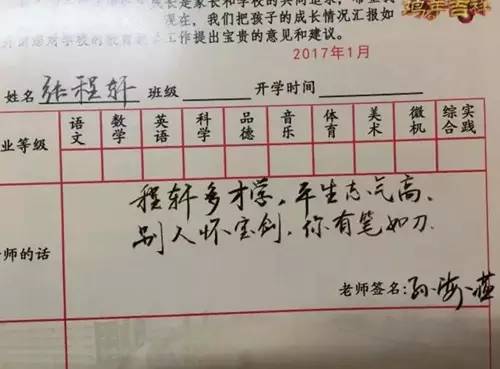 鸡年吉祥
成长是家长和学校的共同追求，
现在，我们把孩子的成长情况汇报如
对学校的教育 工作提出宝贵的意见和建议。
2017年1月
姓名 张程轩 班级 开学时间
业等级 语文 数学 英语 科学 品德 音乐 体育 美术 微机 综合实践
师的话
程轩多才学，平生志气高，
别人怀宝剑，你有笔如刀.
老师签名：孙海燕